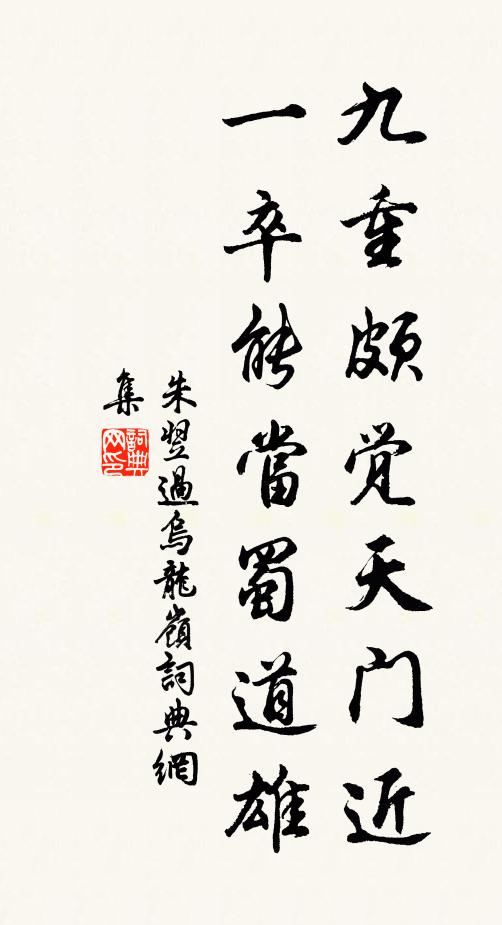 九重頗觉天门近
一卒能當蜀道雄
朱翌過烏龍嶺詞典網
集
詞典
网印